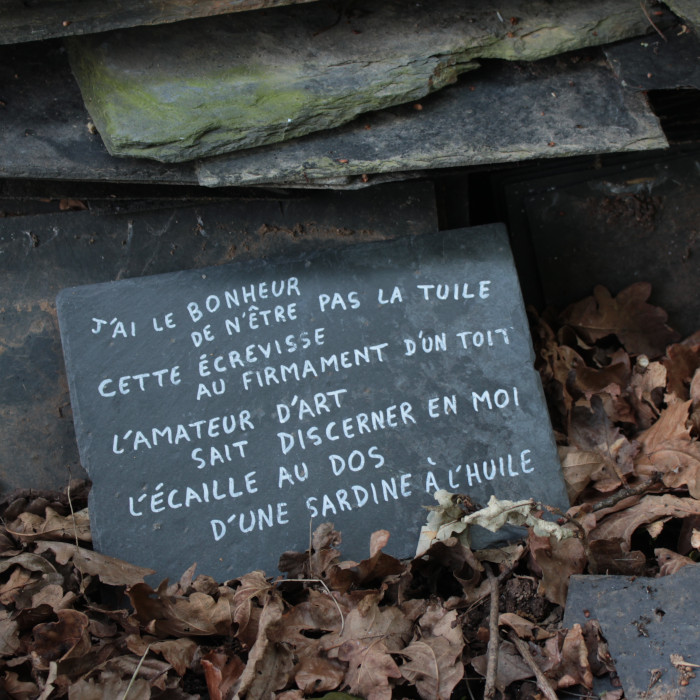 J'AI LE BONHEUR
DE N'ÊTRE PAS LA TUILE
CETTE ÉCREVISSE
AU FIRMAMENT D'UN TOIT
L'AMATEUR D'ART
SAIT DISCERNER EN MOI
L'ÉCAILLE AU DOS
D'UNE SARDINE À L'HUILE